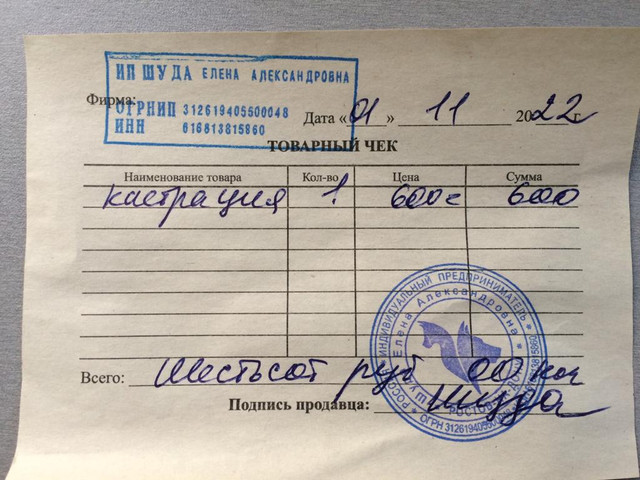 ИП ШУДА ЕЛЕНА АЛЕКСАНДРОВНА
Фирма:
ОГРНИП 312619405500048
ИНН 616813815860
Дата «01» 11 2022 г
ТОВАРНЫЙ ЧЕК
Наименование товара Кол-во Цена Сумма
кастрация 1 600 = 600
ИНДИВИДУАЛЬНЫЙ ПРЕДПРИНИМАТЕЛЬ
Елена Александровна
Всего: Шестьсот руб 00 коп
Подпись продавца: Шуда
ОГРН 312619405500048